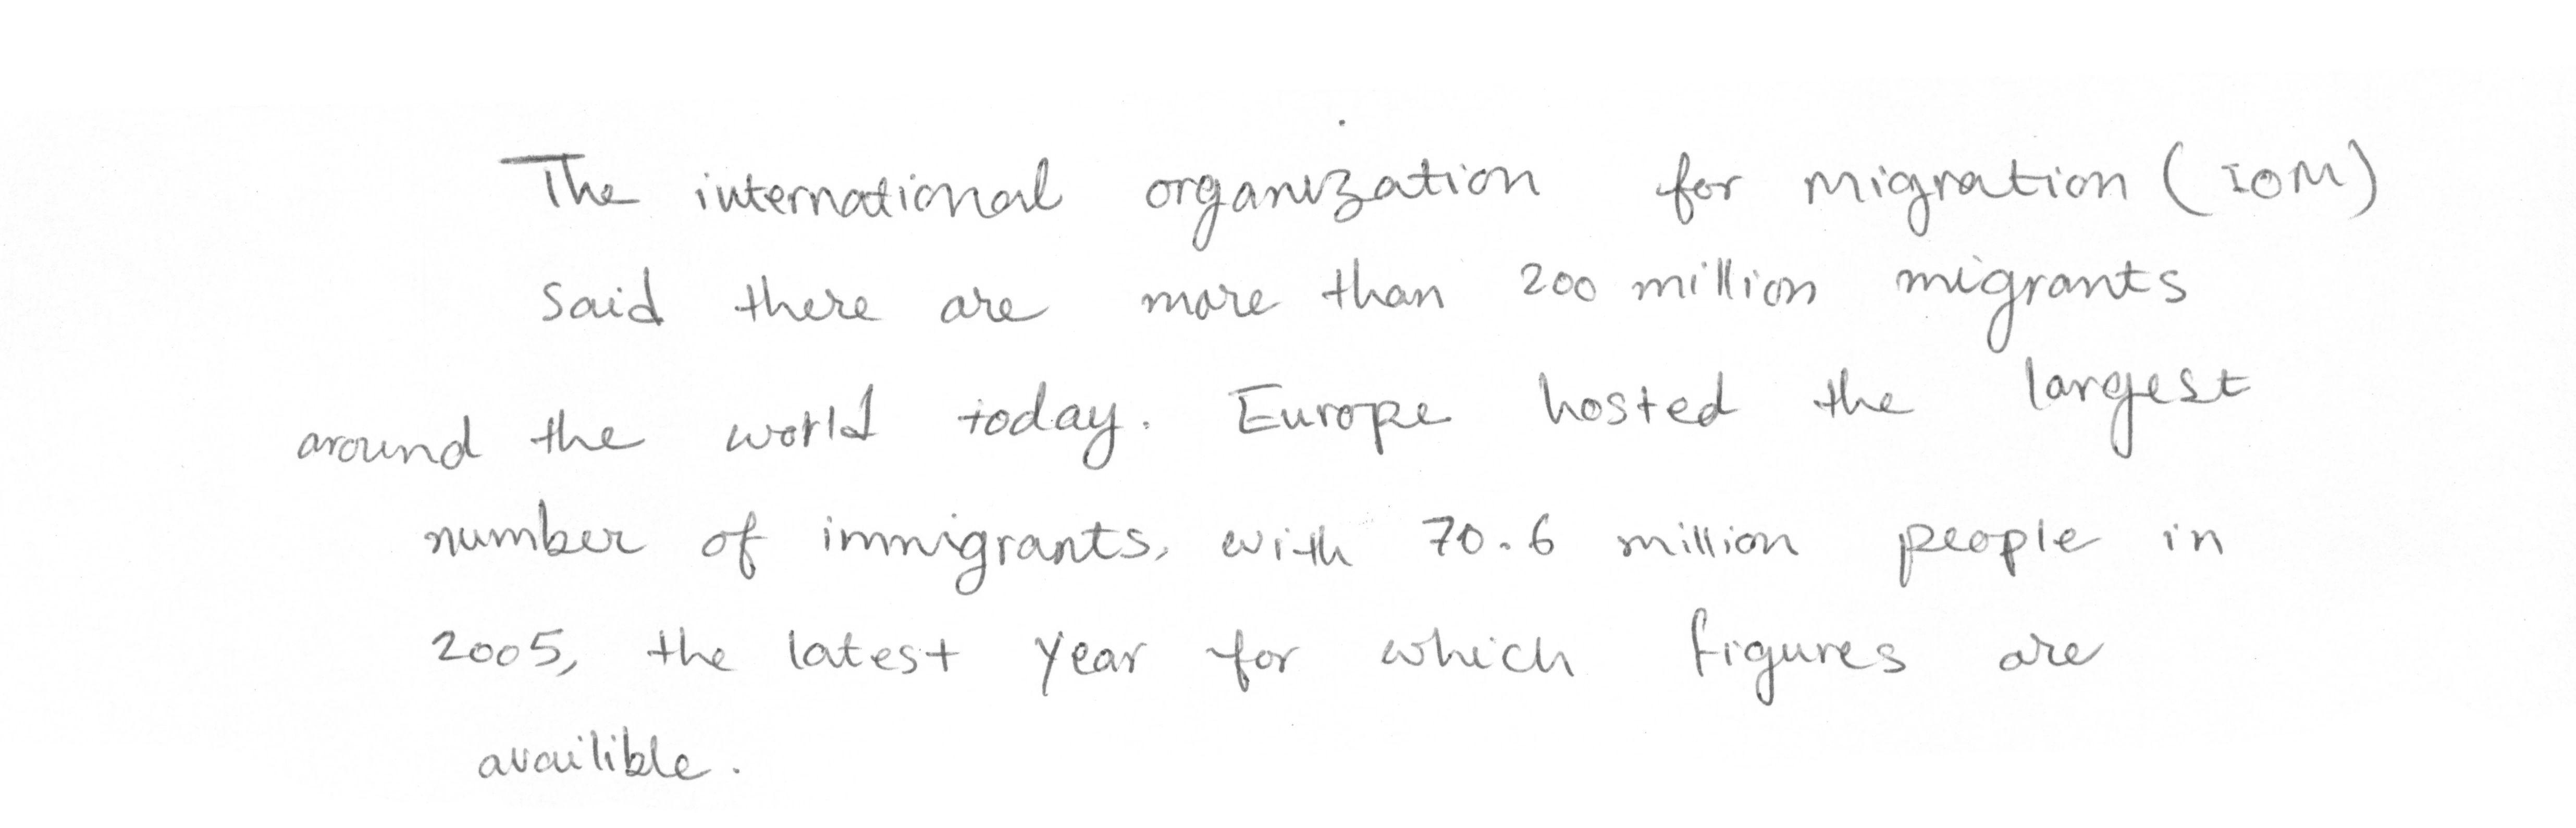 The international organization for migration (IOM)
said there are more than 200 million migrants
around the world today. Europe hosted the largest
number of immigrants, with 70.6 million people in
2005, the latest year for which figures are
availible.